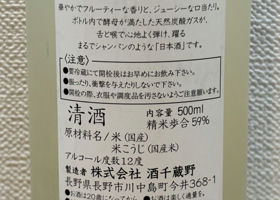 華やかでフルーティーな香りと、ジューシーな口当たり。
ボトル内で酵母が満たした天然炭酸ガスが、
舌と喉でに地よく弾け、躍る
まるでシャンパンのような「日本酒」です。
〈注意〉
●要冷蔵にて開栓後はお早めにお飲み下さい。
●振ったり、衝撃を与えたりしないで下さい。
●開栓の際、衣服や調度品を汚さないようご注意下さい。
清酒
内容量 500ml
精米歩合 59%
原材料名/米(国産)
米こうじ(国産米)
アルコール度数12度
製造者 株式会社 酒千蔵野
長野県長野市川中島町今井368-1
●お酒は20歳になってから。